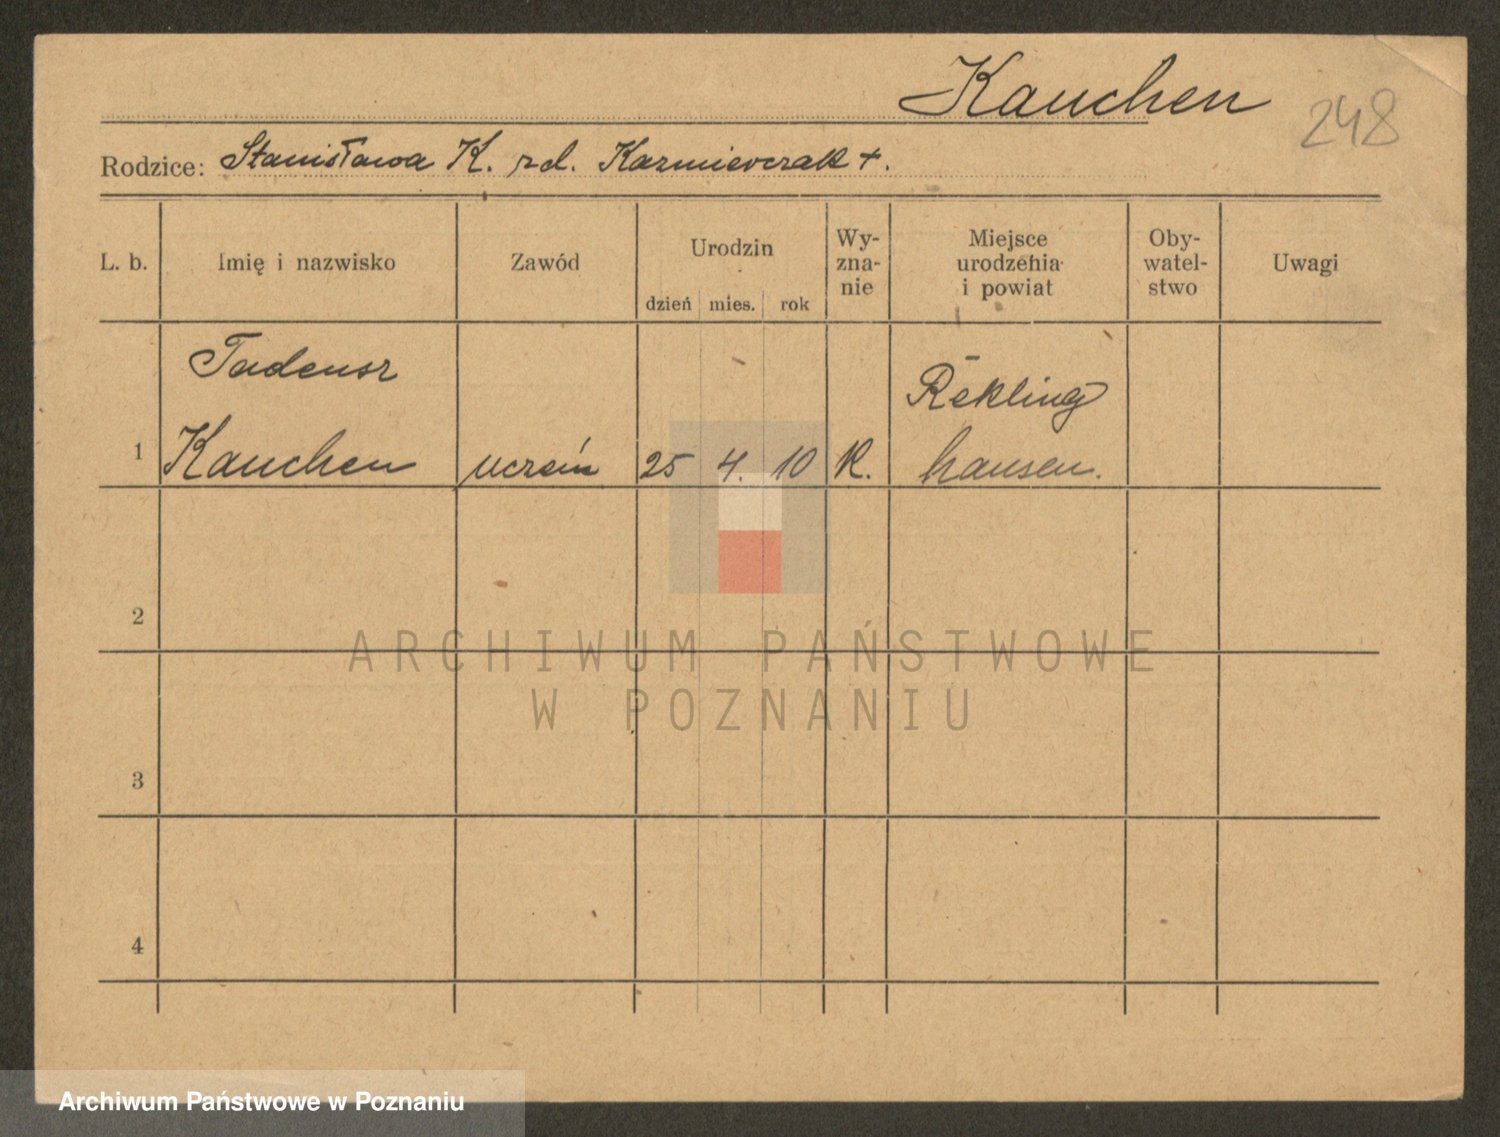 Kauchen
248
Rodzice: Stanisława K. rzd. Kazmierczak +.
L. b. Imię i nazwisko Zawód Urodzin dzień mies. rok Wy-
zna-
nie Miejsce
urodzenia
i powiat Oby-
watel-
stwo Uwagi
Tadeusz
1 Kauchen uczeń 25 4. 10 K. Rekling
hausen.
2
ARCHIWUM PAŃSTWOWE
W POZNANIU
3
4
Archiwum Państwowe w Poznaniu